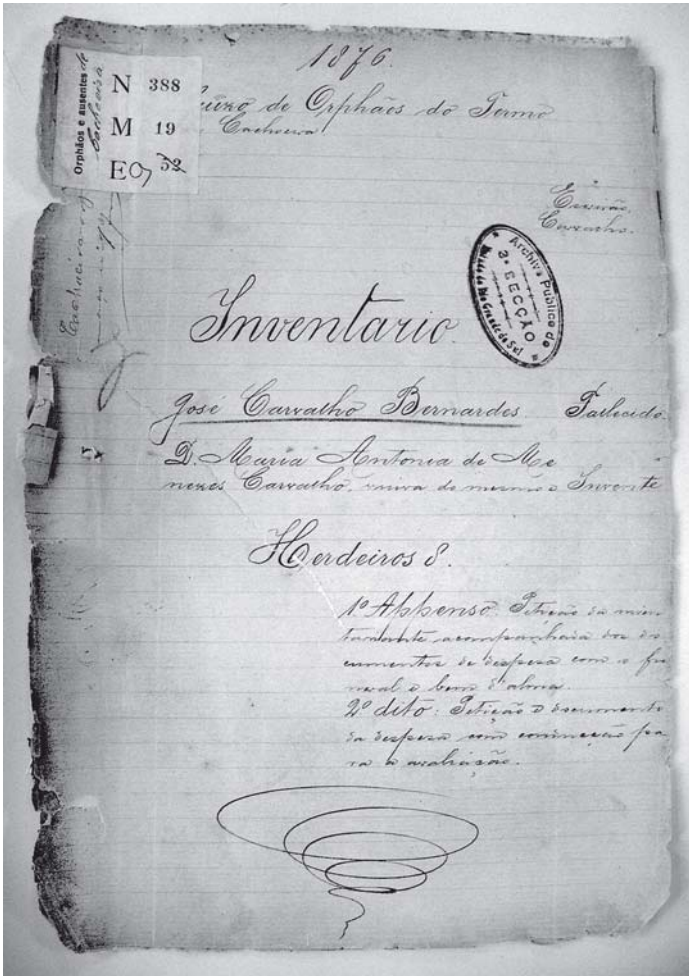 1876.
Orphãos e ausentes de
Cachoeira
N 388
M 19
E 52
Juizo de Orphãos do Termo
Cachoeira
Escrivão,
Carvalho.
Archivo Publico do
3ª SECÇÃO
Rio Grande do Sul
Inventario.
José Carvalho Bernardes Fallecido.
D. Maria Antonia de Me
nezes Carvalho, viuva do mesmo e Invente
Herdeiros 8.
1º Appenso: Petição da inven
tariante acompanhada dos do
cumentos de despesa com o fu
neral e bem d'alma.
2º dito: Petição e documento
da despesa com conducção pa
ra a avaliação.